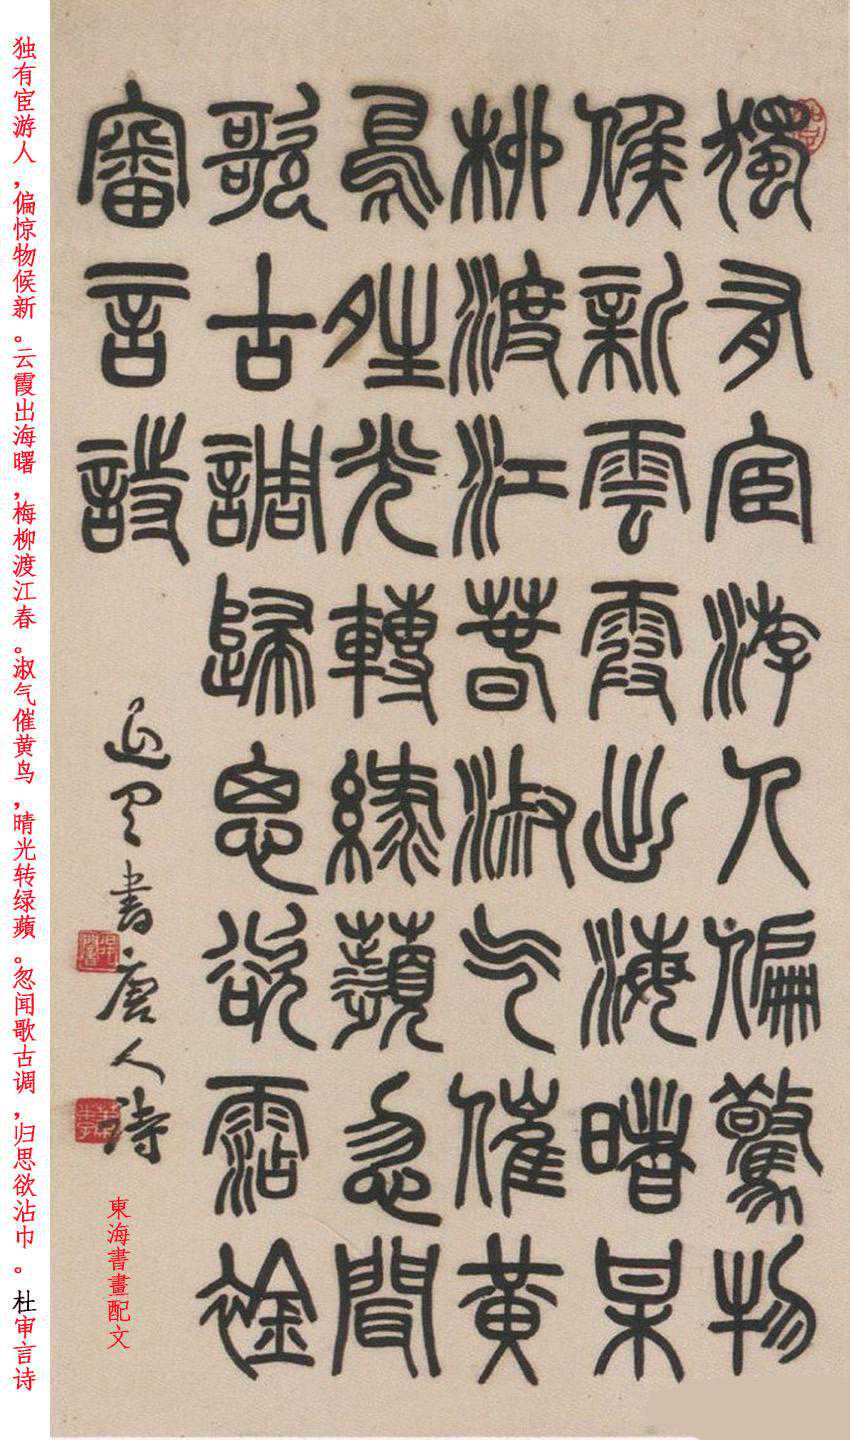 獨有宦游人偏驚物
候新雲霞出海曙某
柳渡江春淑气催黄
鳥夝光轉綠蘋忽間
歌古調歸思欲霑䘳
審言詩
書唐人詩
東海書畫配文
独有宦游人，偏惊物候新。云霞出海曙，梅柳渡江春。淑气催黄鸟，晴光转绿蘋。忽闻歌古调，归思欲沾巾。杜审言诗